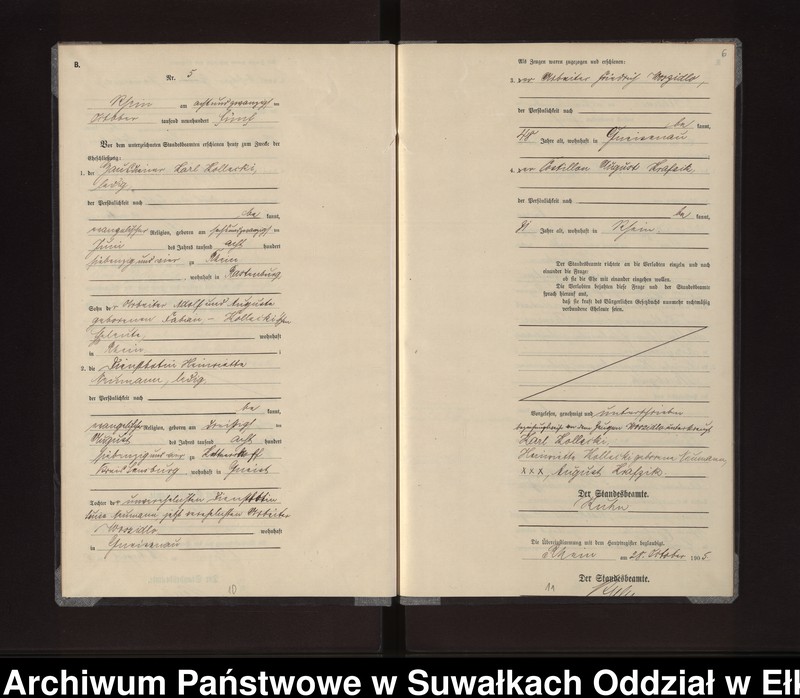 B.
Nr. 5
Rhein am achtundzwanzigsten
Oktober tausend neunhundert fünf
Vor dem unterzeichneten Standesbeamten erschienen heute zum Zwecke der
Eheschließung:
1. der Karl Kollecki,
ledig,
der Persönlichkeit nach
be kannt,
evangelischer Religion, geboren am ten
Juni des Jahres tausend acht hundert
siebenzig und vier zu Rhein
, wohnhaft in Rastenburg
Sohn der Arbeiter Adolf und Auguste
geborenen Fabian - Kolleckischen
Eheleute wohnhaft
in Rhein ;
2. die Henriette
Neumann, ledig
der Persönlichkeit nach
be kannt,
evangelischer Religion, geboren am dreißigsten
August des Jahres tausend acht hundert
siebenzig und vier zu
Kreis Sensburg wohnhaft in
Tochter der unverehelichten
Louise Neumann, jetzt verehelichten Arbeiter
Worzidlo wohnhaft
in Gneisenau
10
6
Als Zeugen waren zugezogen und erschienen:
3. der Arbeiter Friedrich Worzidlo,
der Persönlichkeit nach
be kannt,
Jahre alt, wohnhaft in Gneisenau
4. der Postillon August Krafzik
der Persönlichkeit nach
be kannt,
Jahre alt, wohnhaft in Rhein
Der Standesbeamte richtete an die Verlobten einzeln und nach
einander die Frage:
ob sie die Ehe mit einander eingehen wollen.
Die Verlobten bejahten diese Frage und der Standesbeamte
sprach hierauf aus,
daß sie kraft des Bürgerlichen Gesetzbuchs nunmehr rechtmäßig
verbundene Eheleute seien.
Vorgelesen, genehmigt und unterschrieben
beziehungsweise von dem Zeugen Worzidlo unterkreuzt
Karl Kollecki
Henriette Kollecki geborene Neumann
XXX, August Krafzik
Der Standesbeamte.
Kuhn
Die Übereinstimmung mit dem Hauptregister beglaubigt.
Rhein am 28. Oktober 1905.
Der Standesbeamte.
Kuhn
11
Archiwum Państwowe w Suwałkach Oddział w Ełk